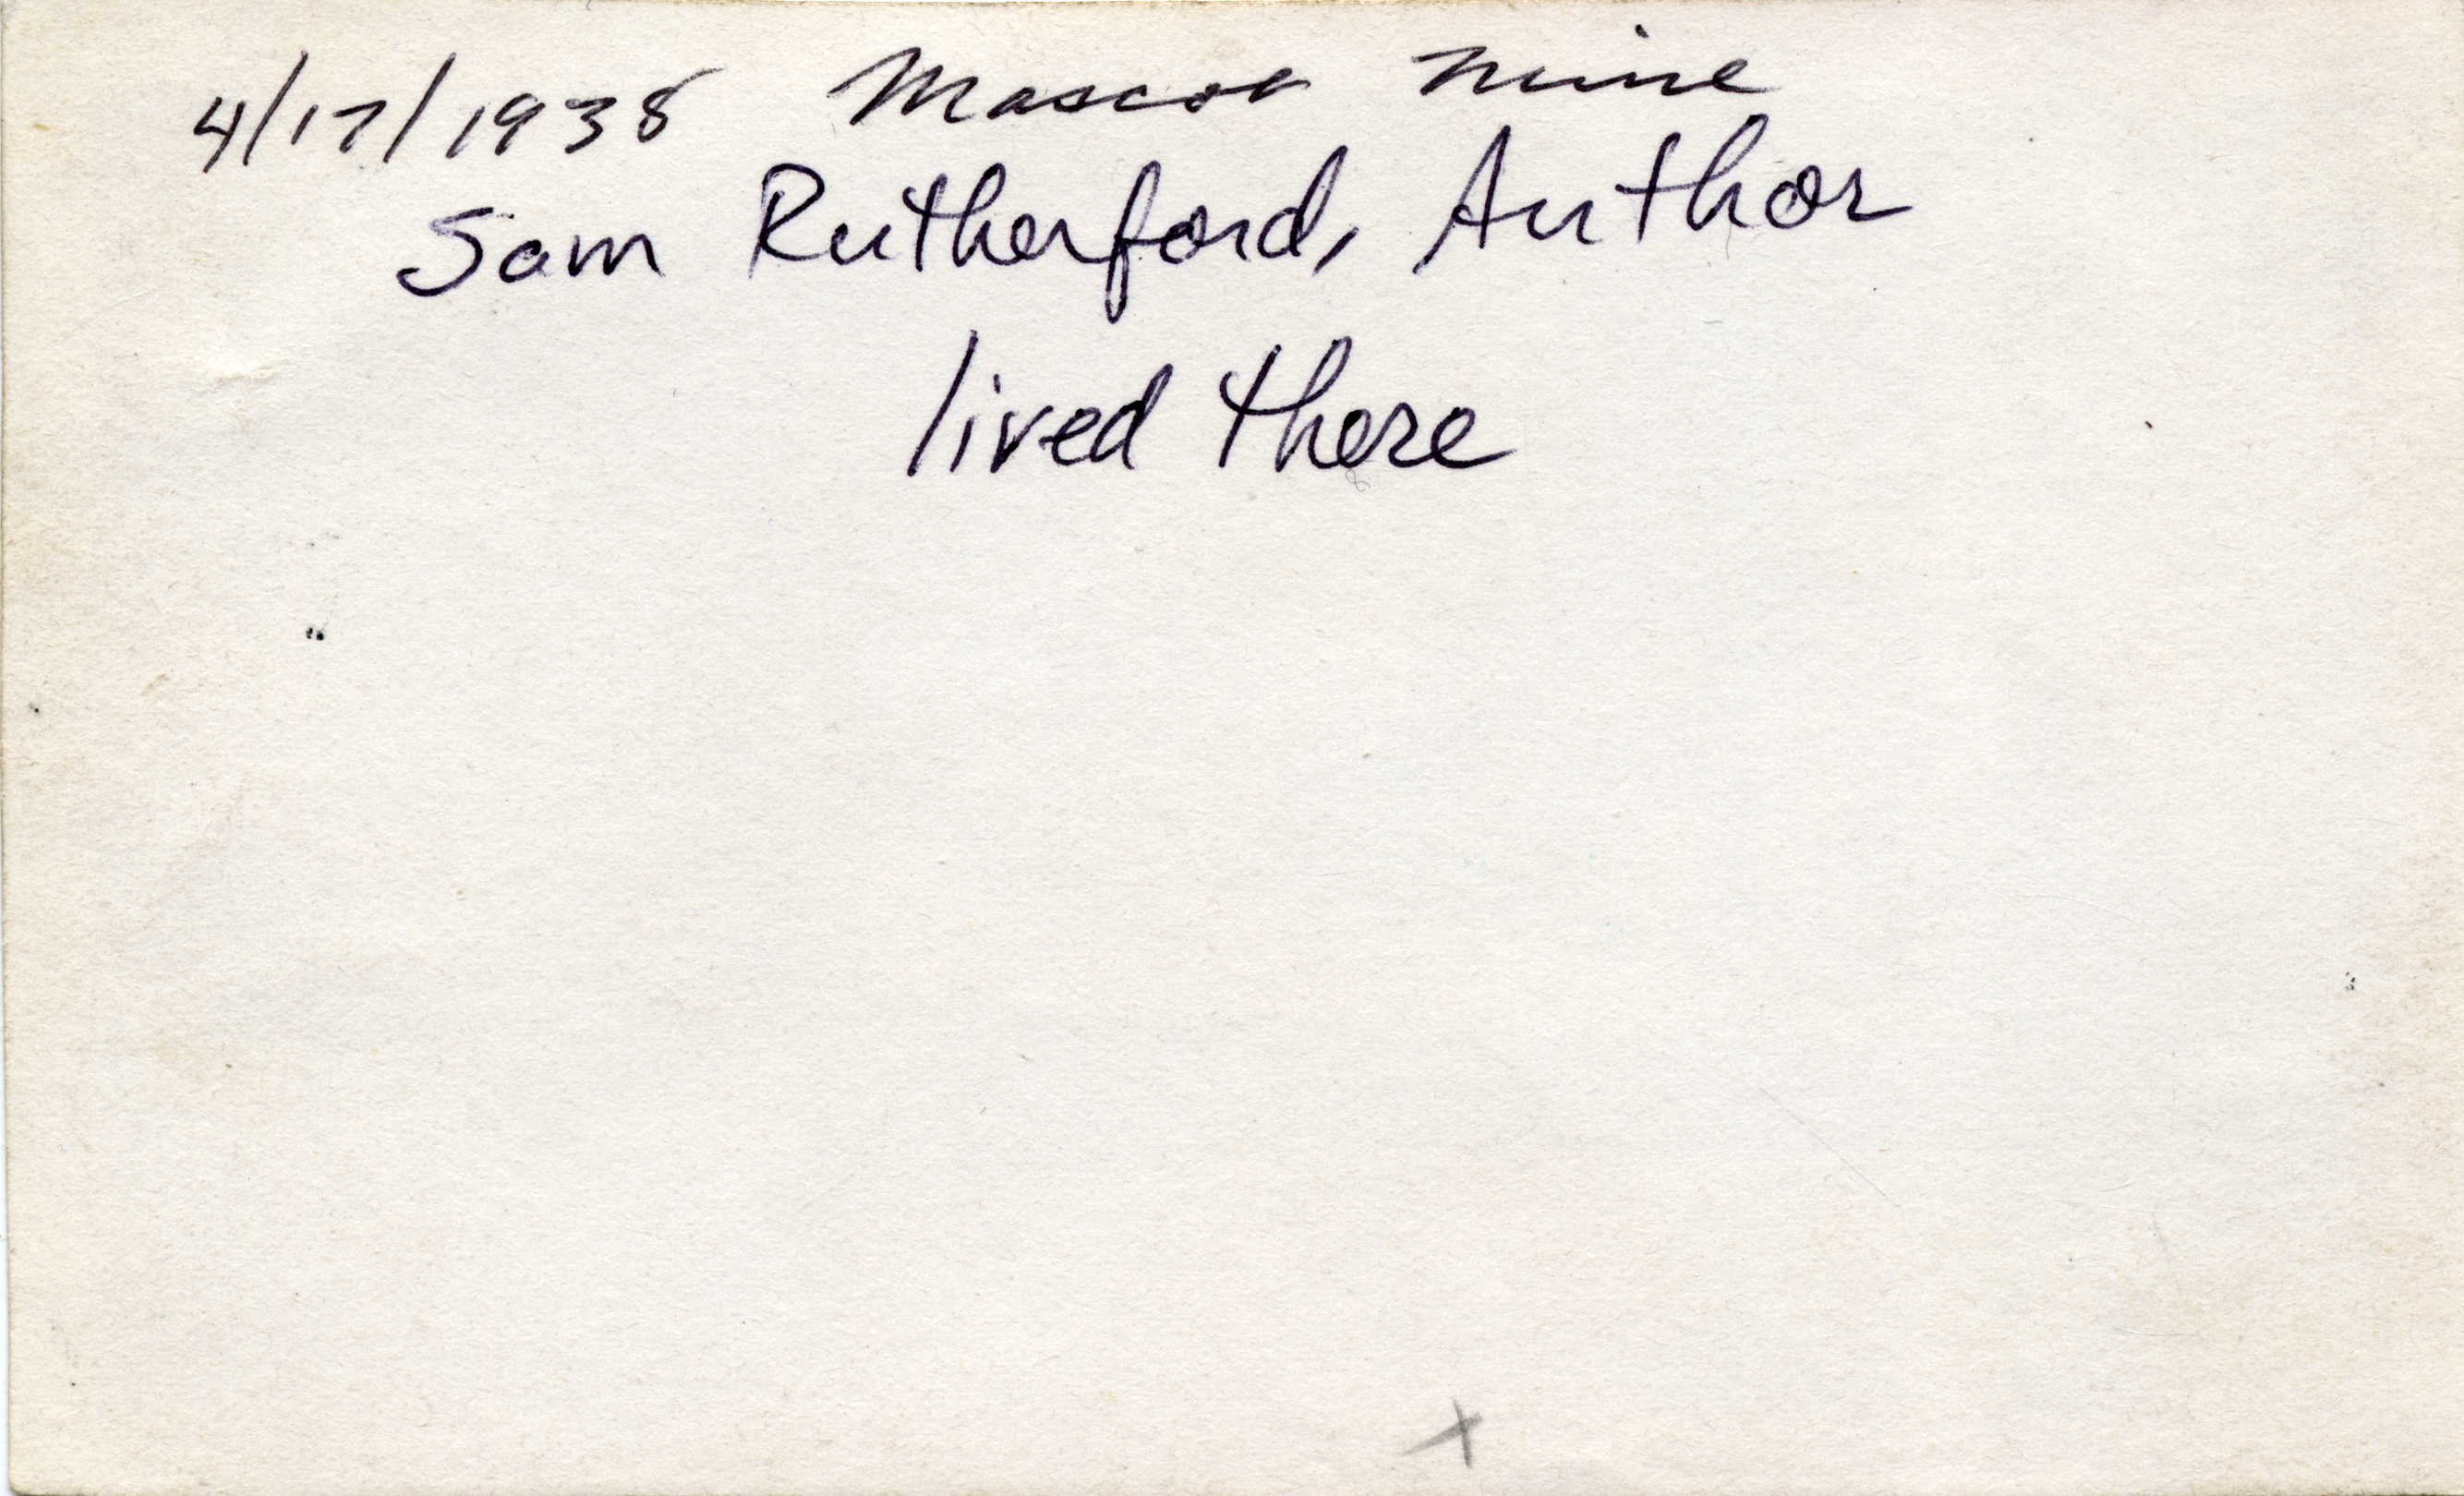 4/17/1938 Mascot Mine
Sam Rutherford, Author
lived there
x